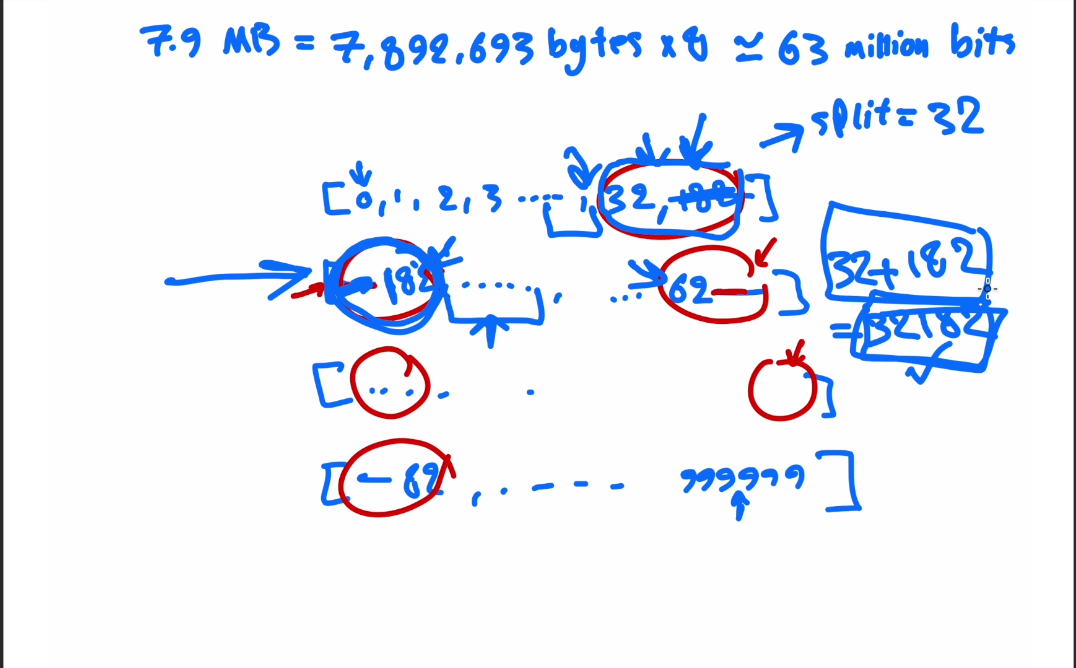 7.9 MB = 7,892,693 bytes x 8 ≃ 63 million bits
split = 32
[0, 1, 2, 3 ....., 32, 182]
[ - 182 ......, ... 62 — ]
32+182
= 32182
[ ... . . ]
[ - 82, . - - - - 999999 ]